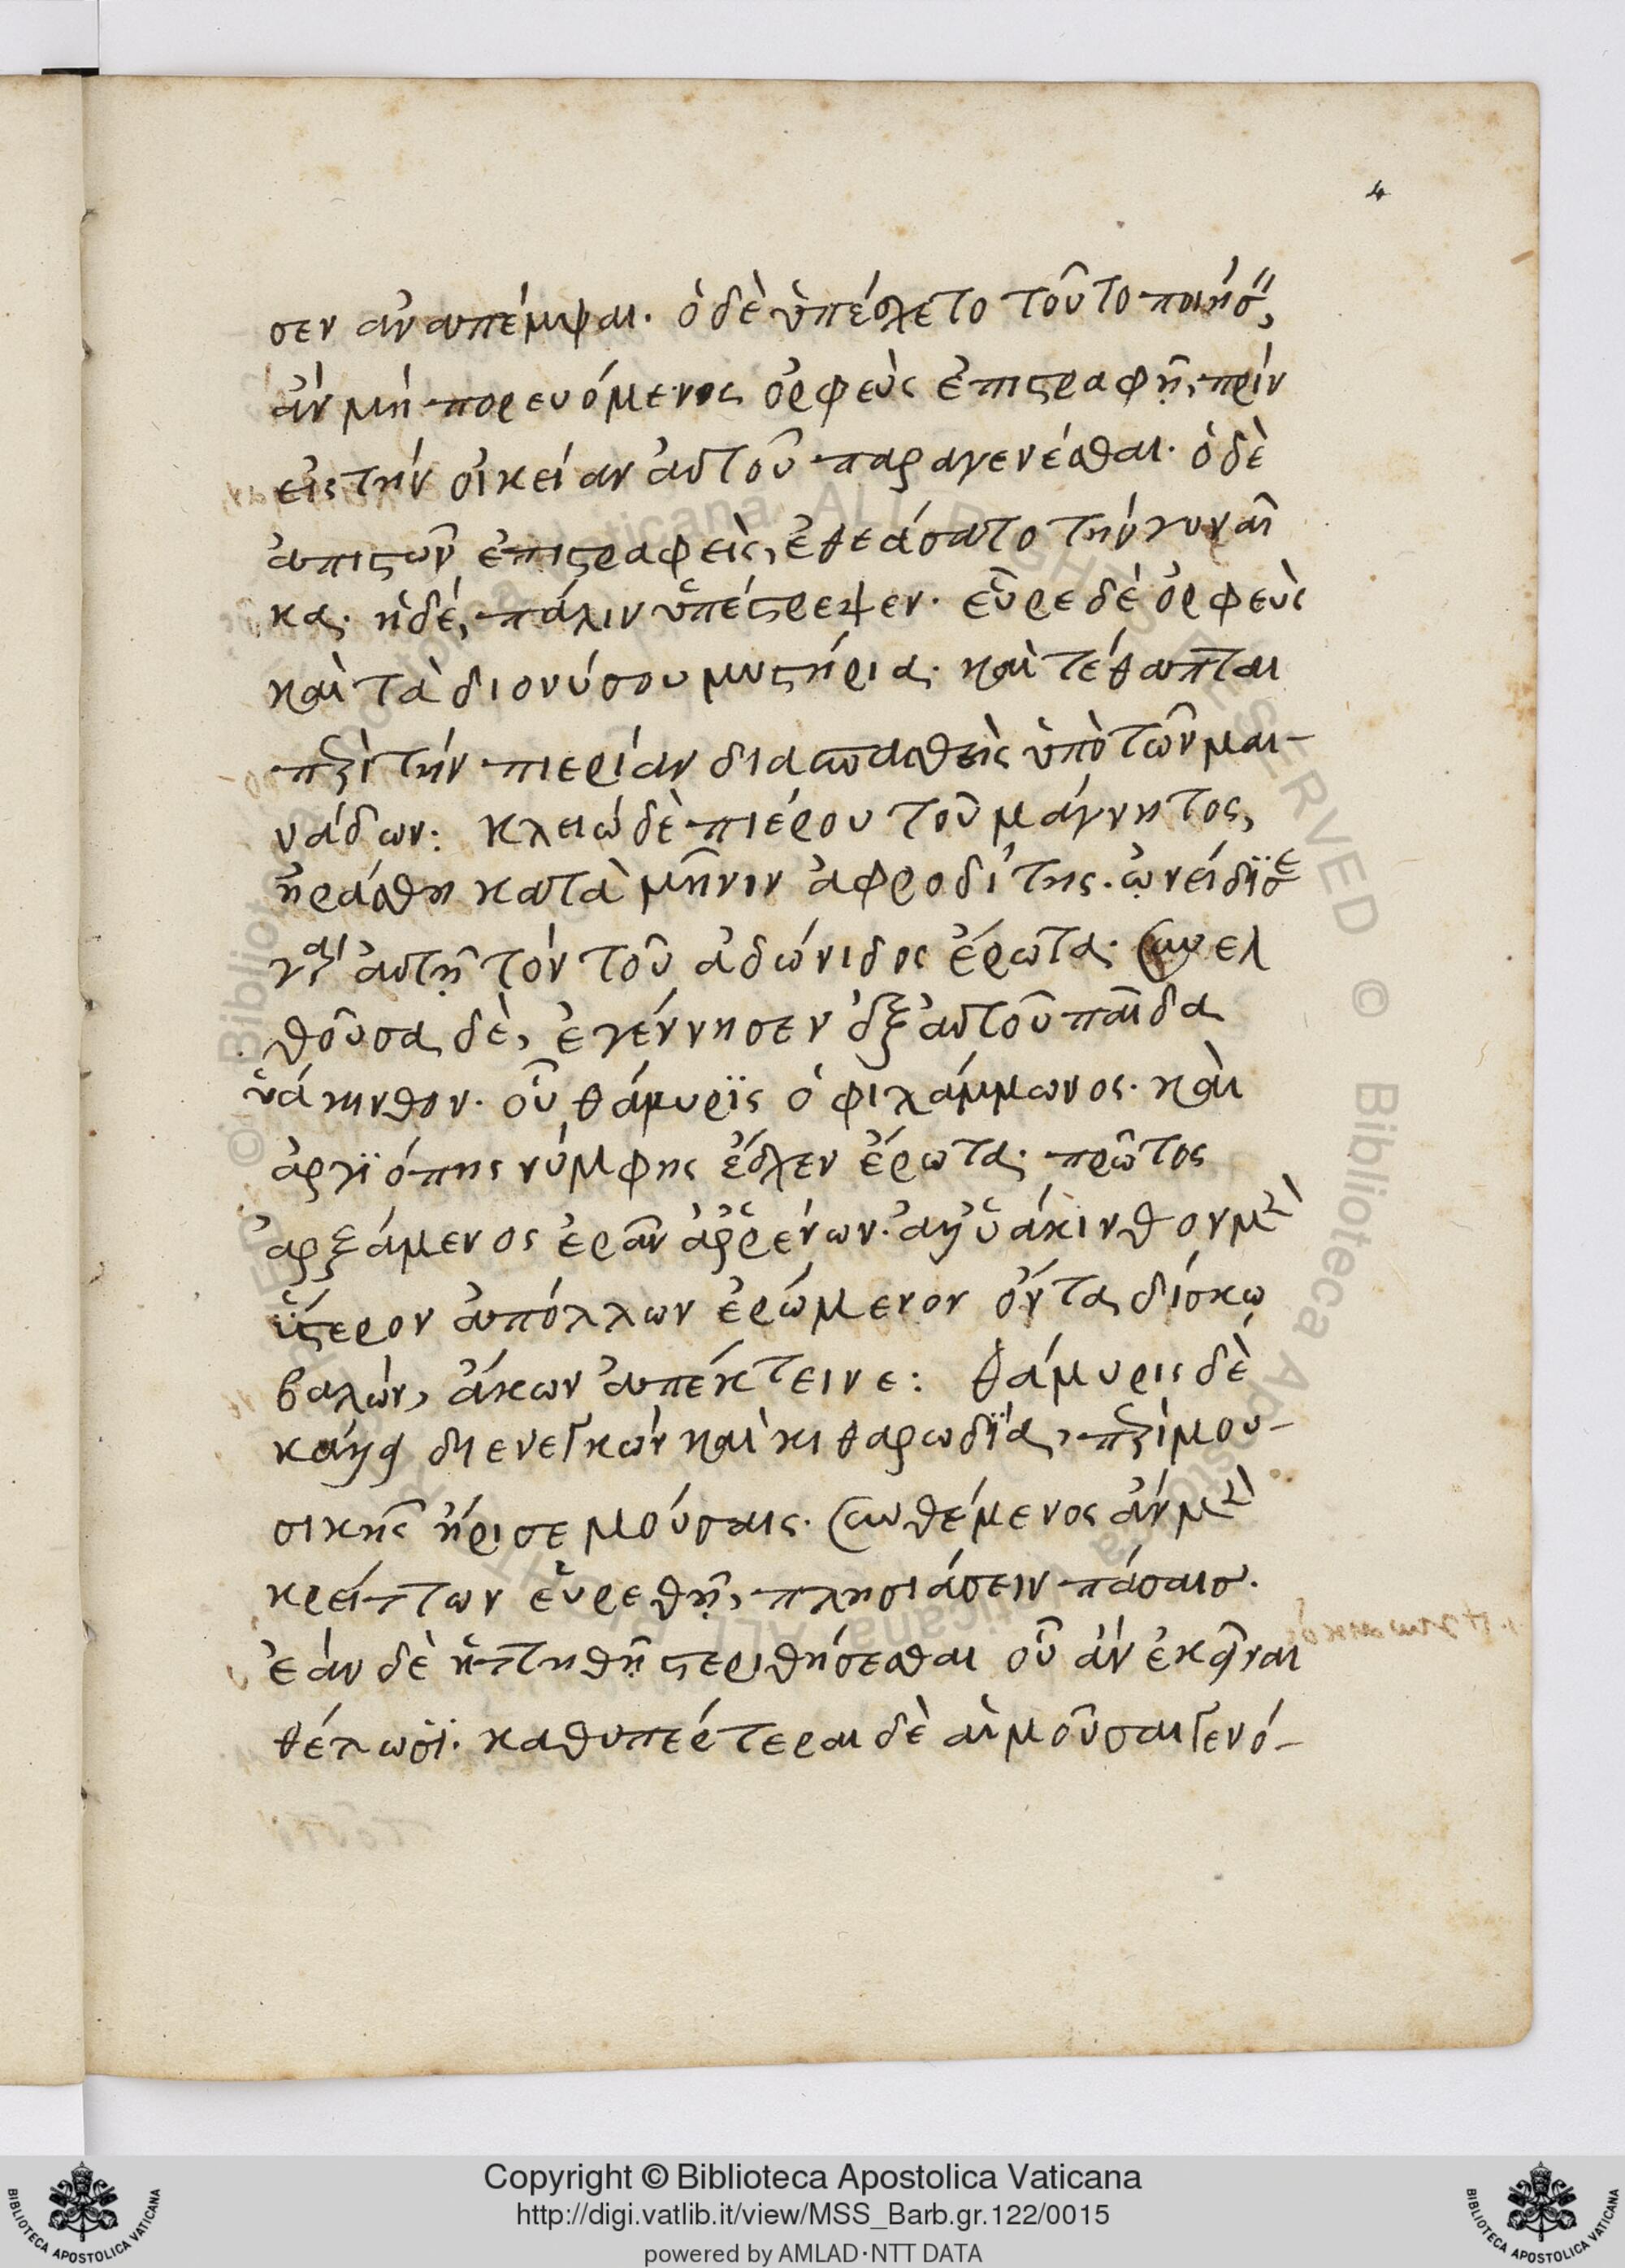 4
σεν ἀναπέμψαι. ὁ δὲ ὑπέσχετο τοῦτο ποιήσ,
ἂν μὴ πορευόμενος ὀρφεὺς ἐπιστραφῇ, πρὶν
εἰς τὴν οἰκείαν αὐτοῦ παραγενέσθαι. ὁ δὲ
ἀπιστῶν ἐπιστραφεὶς, ἐθεάσατο τὴν γυναῖ
κα. ἡ δέ, πάλιν ὑπέστρεψεν. εὗρε δὲ ὀρφεὺς
καὶ τὰ διονύσου μυστήρια. καὶ τέθαπται
περὶ τὴν πιερίαν διασπασθεὶς ὑπὸ τῶν μαι-
νάδων: κλειὼ δὲ πιέρου τοῦ μάγνητος,
ἠράσθη κατὰ μῆνιν ἀφροδίτης. ὠνείδισε
γὰρ αὐτῇ τὸν τοῦ ἀδώνιδος ἔρωτα. συνελ
θοῦσα δὲ, ἐγέννησεν ἐξ αὐτοῦ παῖδα
ὑάκινθον. οὗ θάμυρϊς ὁ φιλάμμωνος. καὶ
ἀργϊόπης νύμφης ἔσχεν ἔρωτα. πρῶτος
ἀρξάμενος ἐρᾶν ἀῤῥένων. ἀλλ' ὑάκινθον μὲν
ὕστερον ἀπόλλων ἐρώμενον ὄντα δίσκῳ
βαλὼν, ἄκων ἀπέκτεινε: θάμυρις δὲ
κάλλει διενεγκὼν καὶ κιθαρωδΐα, περὶ μου-
σικῆς ἤρισε μούσαις. συνθέμενος ἂν μὲν
κρείττων εὑρεθῇ, πλησιάσειν πάσαισ.
ἐὰν δὲ ἡττηθῇ στεριθήσεσθαι οὗ ἂν ἐκεῖναι
θέλωσϊ. καθυπέρτεραι δὲ αἱ μοῦσαι γενό-
Copyright © Biblioteca Apostolica Vaticana
http://digi.vatlib.it/view/MSS_Barb.gr.122/0015
powered by AMLAD·NTT DATA
BIBLIOTECA APOSTOLICA VATICANA
BIBLIOTECA APOSTOLICA VATICANA